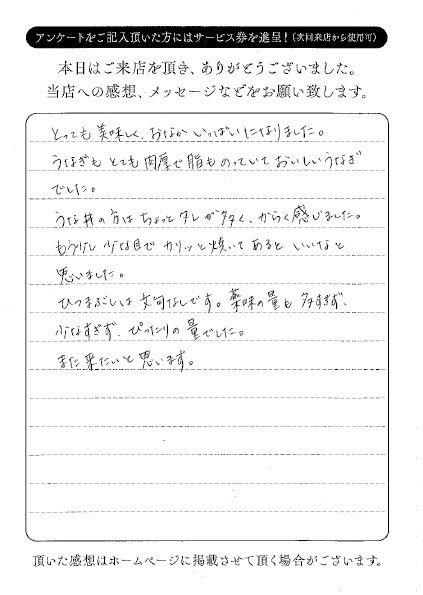 アンケートをご記入頂いた方にはサービス券を進呈！(次回来店から使用可)
本日はご来店を頂き、ありがとうございました。
当店への感想、メッセージなどをお願い致します。
とっても美味しく、おなかいっぱいになりました。
うなぎもとても肉厚で脂ものっていておいしいうなぎ
でした。
うな丼の方はちょっとタレが多く、からく感じました。
もう少し少な目でカリッと焼いてあるといいなと
思いました。
ひつまぶしは文句なしです。薬味の量も多すぎず、
少なすぎず、ぴったりの量でした。
また来たいと思います。
頂いた感想はホームページに掲載させて頂く場合がございます。